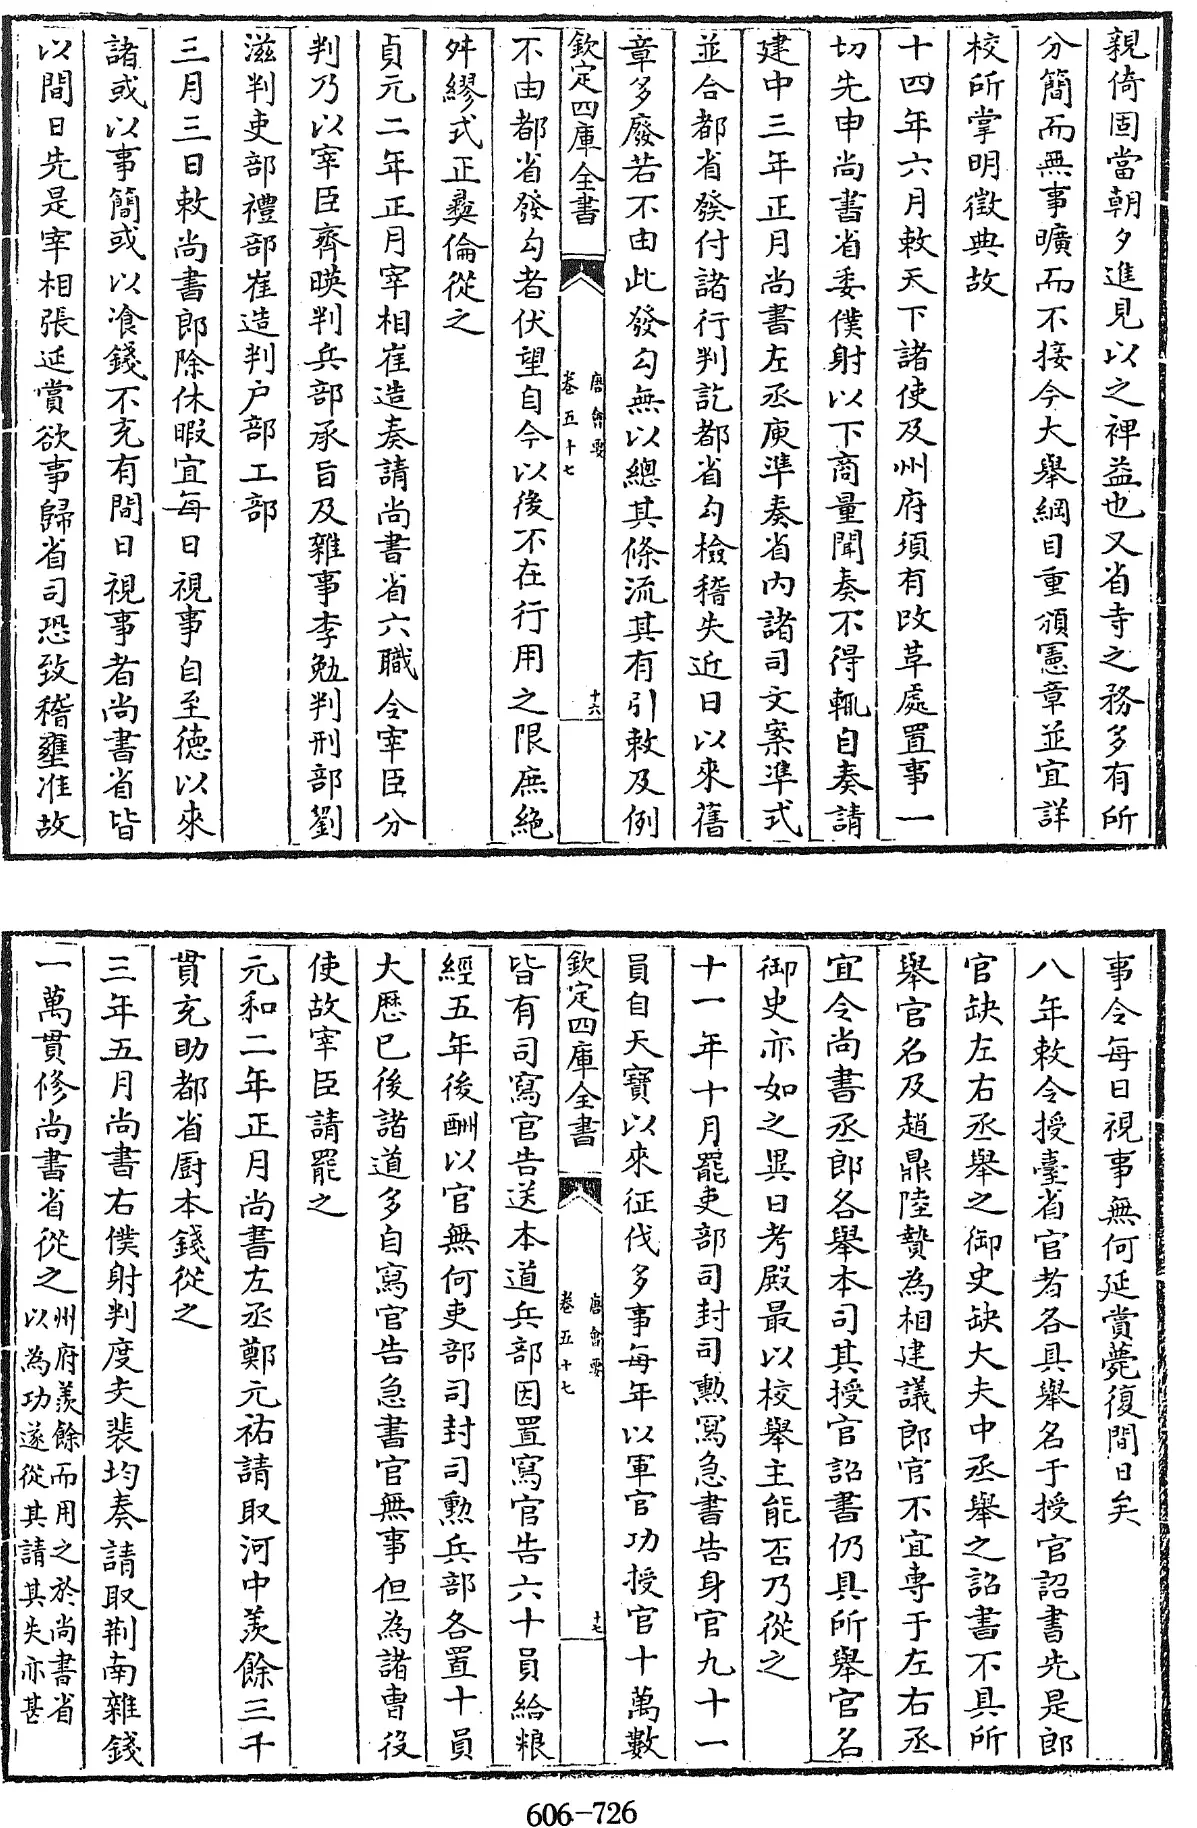 親倚固當朝夕進見以之裨益也又省寺之務多有所
分簡而無事曠而不接今大舉綱目重頒憲章並宜詳
校所掌明徵典故
十四年六月敕天下諸使及州府須有改革處置事一
切先申尚書省委僕射以下商量聞奏不得輒自奏請
建中三年正月尚書左丞庾準奏省内諸司文案準式
並合都省發付諸行判訖都省勾檢稽失近日以來舊
章多廢若不由此發勾無以總其條流其有引敕及例
欽定四庫全書
唐會要
卷五十七
十六
不由都省發勾者伏望自今以後不在行用之限庶絶
舛繆式正彝倫從之
貞元二年正月宰相崔造奏請尚書省六職令宰臣分
判乃以宰臣齊暎判兵部承旨及雜事李勉判刑部劉
滋判吏部禮部崔造判户部工部
三月三日敕尚書郎除休暇宜每日視事自至德以來
諸或以事簡或以飡錢不充有間日視事者尚書省皆
以間日先是宰相張延賞欲事歸省司恐致稽壅准故
事令每日視事無何延賞薨復間日矣
八年敕令授臺省官者各具舉名于授官詔書先是郎
官缺左右丞舉之御史缺大夫中丞舉之詔書不具所
舉官名及趙鼎陸贄為相建議郎官不宜專于左右丞
宜令尚書丞郎各舉本司其授官詔書仍具所舉官名
御史亦如之異日考殿最以校舉主能否乃從之
十一年十月罷吏部司封司勲寫急書告身官九十一
員自天寶以來征伐多事每年以軍官功授官十萬數
欽定四庫全書
唐會要
卷五十七
十七
皆有司寫官告送本道兵部因置寫官告六十員給粮
經五年後酬以官無何吏部司封司勲兵部各置十員
大歷已後諸道多自寫官告急書官無事但為諸曹役
使故宰臣請罷之
元和二年正月尚書左丞鄭元祐請取河中羨餘三千
貫充助都省厨本錢從之
三年五月尚書右僕射判度支裴均奏請取荆南雜錢
一萬貫修尚書省從之州府羨餘而用之於尚書省
以為功遂從其請其失亦甚
606-726